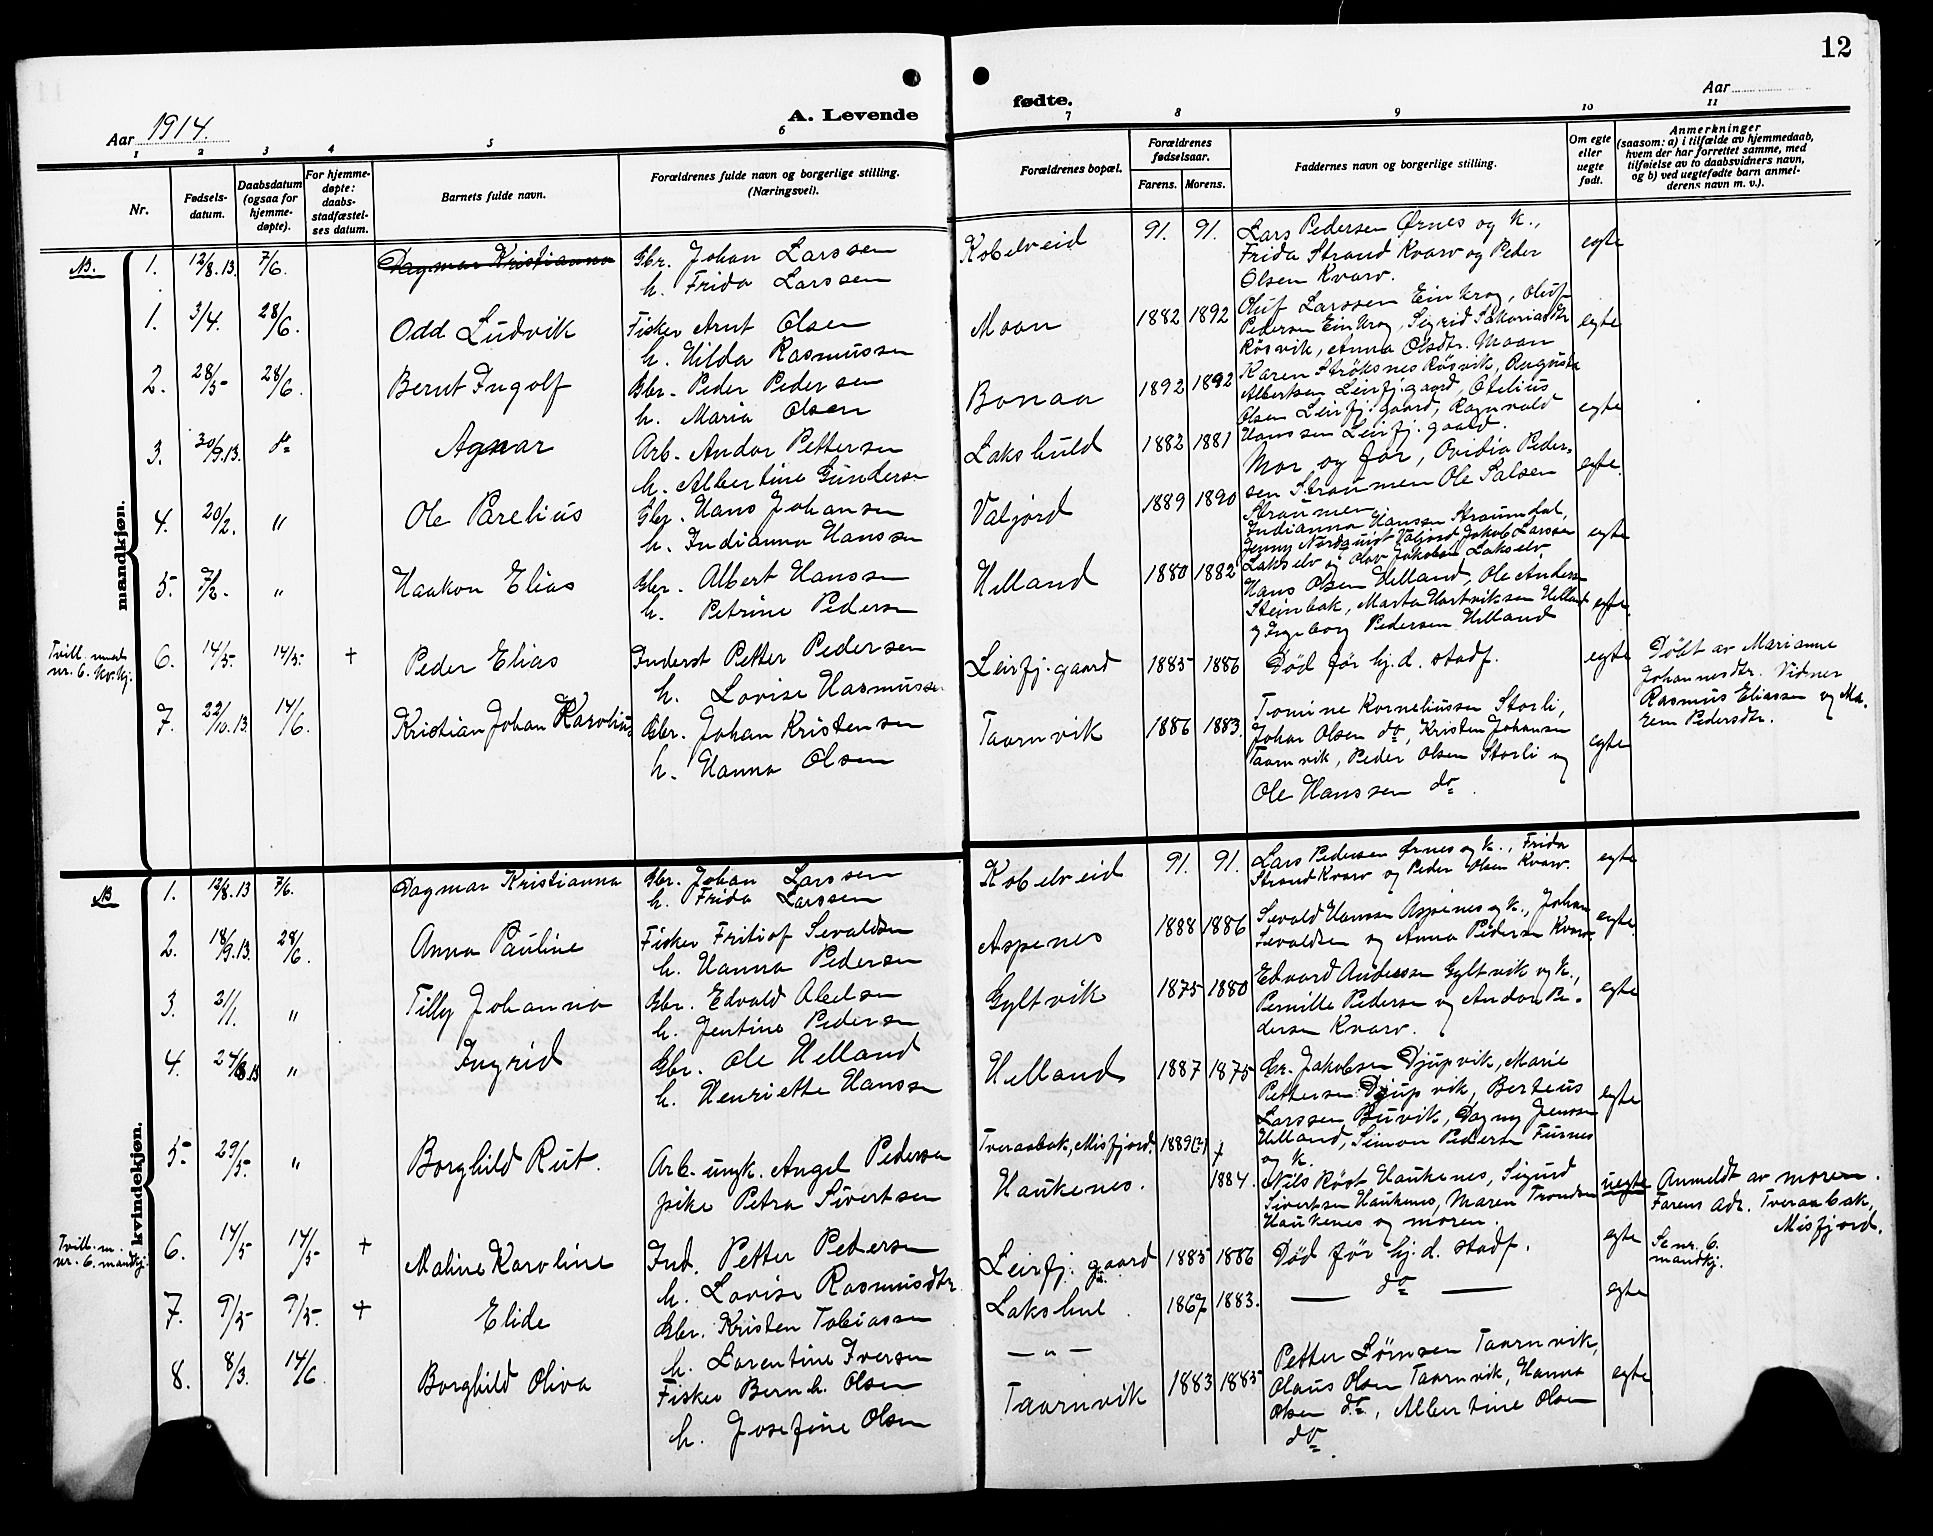 12
Aar 1914.
A. Levende
fødte.
Aar
1 2 3 4 5 6 7 8 9 10 11
Nr.
Fødsels-
datum.
Daabsdatum
(ogsaa for
hjemme-
døpte).
For hjemme-
døpte:
daabs-
stadfæstel-
ses datum.
Barnets fulde navn.
Forældrenes fulde navn og borgerlige stilling.
(Næringsvei).
Forældrenes bopæl.
Forældrenes
fødselsaar.
Farens. Morens.
Faddernes navn og borgerlige stilling.
Om egte
eller
uegte
født.
Anmerkninger
(saasom: a) i tilfælde av hjemmedaab,
hvem der har forrettet samme, med
tilføielse av to daabsvidners navn,
og b) ved uegtefødte barn anmel-
derens navn m. v.).
mandkjøn.
NB. 1. 12/8.13. 7/6. Dagmar Kristianna Gbr. Johan Larssen Kobelveid 91. 91. Lars Pedersen Ørnes og k., egte
h. Frida Larssen Frida Strand Kvarv og Peder
Olsen Kvarv.
1. 3/4. 28/6. Odd Ludvik Fisker Arnt Olsen Moan 1882 1892 Oluf Larssen Einkrog, Oluf egte
h. Hilda Rasmussen Pedersen Einkrog, Sigrid Sakariasdtr
Rösvik, Anna Olsdtr. Maan
2. 28/5 28/6. Bernt Ingolf Gbr. Peder Pedersen Bonaa 1892 1892 Karen Strøksnes Rösvik, Augusta egte
h. Maria Olsen Albertsen Leirfj.gaard, Otelius
Olsen Leirfj.gaard, Ragnvald
Hanssen Leirfj.gaard.
3. 30/9.13. do Agnar Arb. Andor Pettersen Lakshuld 1882 1881 Mor og far, Ovidia Peder- egte.
h. Albertine Gundersen sen Straumen Ole Salsen
Straumen
4. 20/2. " Ole Parelius Gbr. Hans Johansen Valjord 1889 1890 Indianna Hanssen Straumdal, egte
h. Indianna Hanssen Jenny Nordquist Valjord Jakob Larssen
Lakselv og Olav Jakobsen Lakselv
5. 7/2. " Haakon Elias Gbr. Albert Hanssen Helland 1880 1882 Hans Olsen Helland, Ole Andersen egte.
h. Petrine Pedersen Steinbak, Marta Hartviksen Helland
og Ingeborg Pedersen Helland
Tvill. med
nr. 6. kv.kj.
6. 14/5. 14/5. + Peder Elias Inderst Petter Pedersen Leirfj.gaard 1885 1886 Död før hj.d. stadf. egte Döbt av Marianne
h. Lovise Rasmussen Johannesdtr. Vidner
Rasmus Eliassen og Ma-
ren Pedersdtr.
7. 22/10.13. 14/6. Kristian Johan Karolius Gbr. Johan Kristensen Taarnvik 1886 1883. Tomine Korneliussen Storli, egte
h. Hanna Olsen Johan Olsen do, Kristen Johansen
Taarnvik, Peder Olsen Storli og
Ole Hanssen do.
kvindekjøn.
NB 1. 12/8.13 7/6. Dagmar Kristianna Gbr. Johan Larssen Kobelveid 91. 91. Lars Pedersen Ørnes og k., Frida egte
h. Frida Larssen Strand Kvarv og Peder Olsen Kvarv.
2. 18/9.13. 28/6. Anna Pauline Fisker Fritiof Sevaldsen Aspenes 1888 1886 Sevald Hanssen Aspenes og k., Johan egte
h. Hanna Pedersen Sevaldsen og Anna Pedersen Kvarv.
3. 21/1. " Tilly Johanna Gbr. Edvald Abelsen Gyltvik 1875 1880 Edvard Anderssen Gyltvik og k., egte
h. Jentine Pedersen Pernille Pedersen og Andor Pe-
dersen Kvarv.
4. 24/8.13 " Ingrid Gbr. Ole Helland Helland 1887 1875 Chr. Jakobsen Djupvik, Marie egte
h. Henriette Hanssen Pettersen Djupvik, Berteus
Larssen Buvik, Dagny Jenssen
Helland, Simon Pedersen Furnes
og k.
5. 29/5. " Borghild Rut. Arb. ungk. Angel Pedersen Tveraabak, Misfjord. 1889(?) +
pike Petra Sivertsen Haukenes. 1884. Nils Röst Haukenes, Sigurd uegte Anmeldt av moren.
Sivertsen Haukenes, Maren Trondsen Farens adr. Tveraabak,
Haukenes og moren. Misfjord.
Tvill. m.
nr. 6. mandkj.
6. 14/5 14/5 + Maline Karoline Ind. Petter Pedersen Leirfj.gaard 1885 1886 Död før hj.d. stadf. egte Se nr. 6.
h. Lovise Rasmusdtr mandkj.
7. 9/5 9/5. + Elide Gbr. Kristen Tobiassen Lakshul. 1867 1883. — do — egte
h. Lorentine Iversen — " —
8. 8/3. 14/6. Borghild Oliva Fisker Bernh. Olsen Taarnvik 1883 1885 Petter Lørnsen Taarnvik, egte
h. Josefine Olsen Olaus Olsen Taarnvik, Hanna
Olsen do, Albertine Olsen
do.